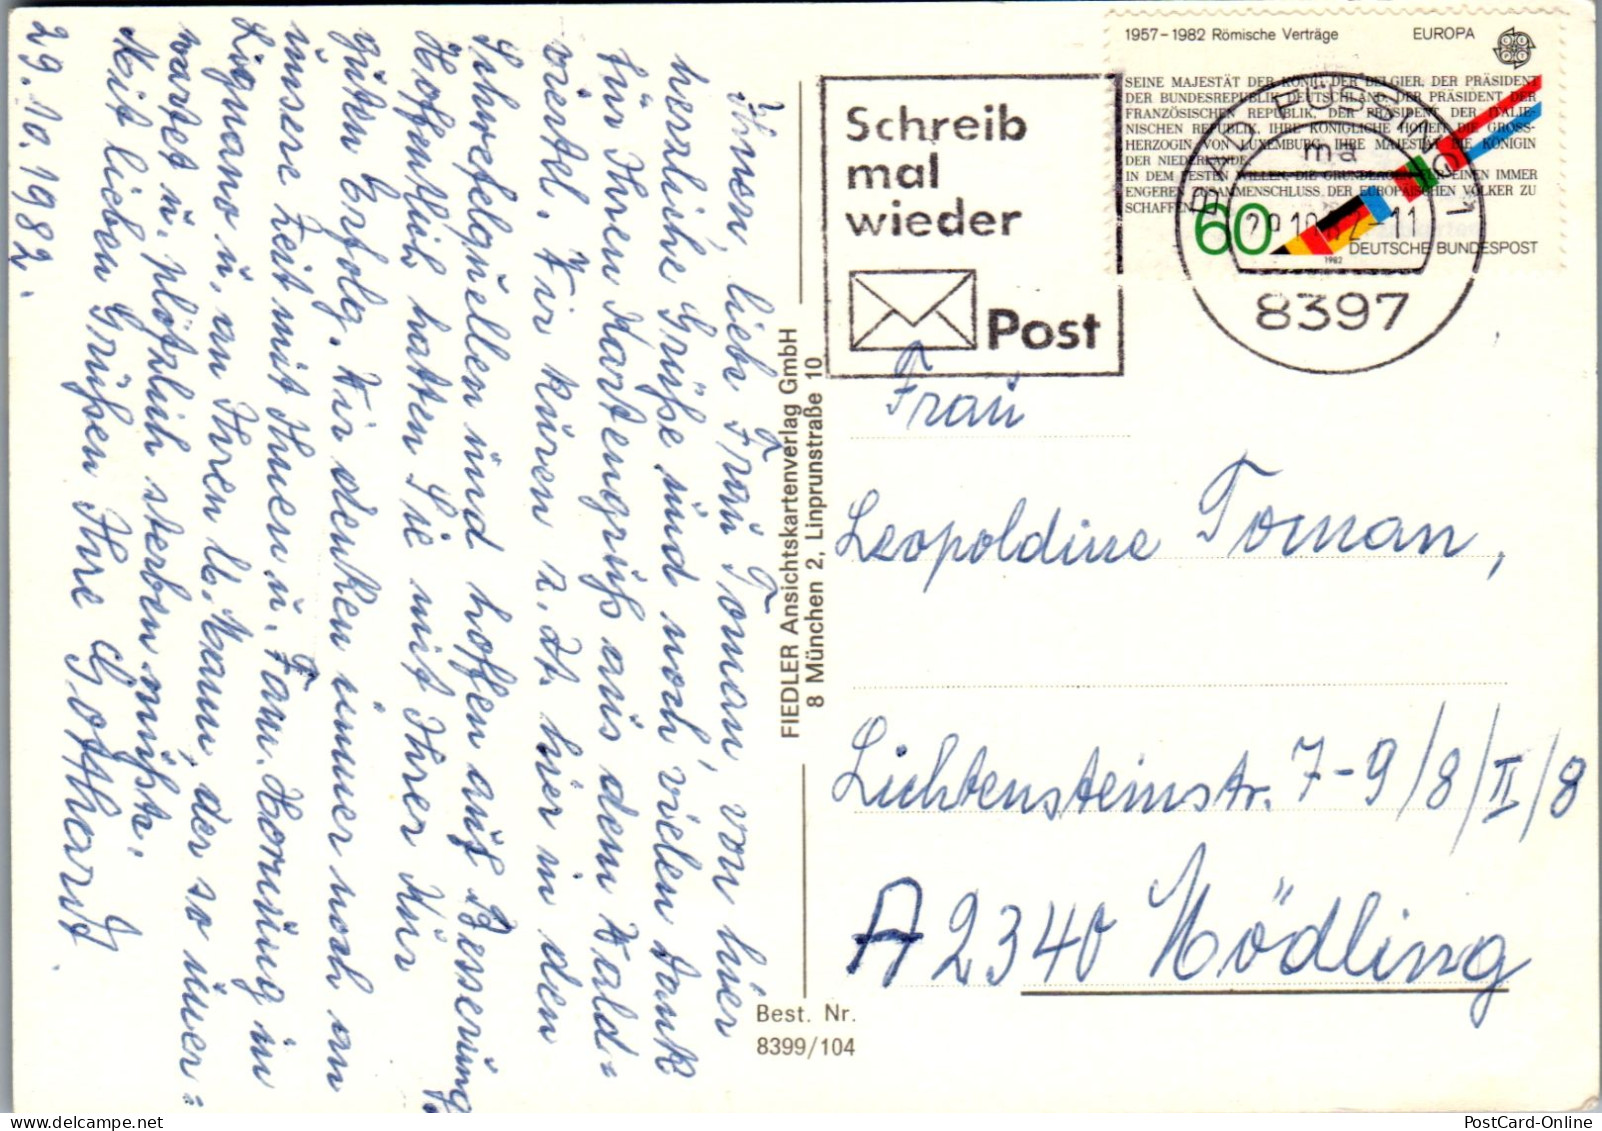 1957-1982 Römische Verträge EUROPA
SEINE MAJESTÄT DER KÖNIG DER BELGIER, DER PRÄSIDENT
DER BUNDESREPUBLIK DEUTSCHLAND, DER PRÄSIDENT DER
FRANZÖSISCHEN REPUBLIK, DER PRÄSIDENT DER ITALIE-
NISCHEN REPUBLIK, IHRE KÖNIGLICHE HOHEIT DIE GROSS-
HERZOGIN VON LUXEMBURG, IHRE MAJESTÄT DIE KÖNIGIN
DER NIEDERLANDE
IN DEM FESTEN WILLEN, DIE GRUNDLAGEN FÜR EINEN IMMER
ENGEREN ZUSAMMENSCHLUSS DER EUROPÄISCHEN VÖLKER ZU
SCHAFFEN
60
DEUTSCHE BUNDESPOST
1982
BAD FÜSSING 1
ma
29.10.82-11
8397
Schreib
mal
wieder
Post
Frau
Leopoldine Toman,
Lichtensteinstr. 7-9/8/II/8
A 2340 Mödling
FIEDLER Ansichtskartenverlag GmbH
8 München 2, Linprunstraße 10
Best. Nr.
8399/104
Ihnen, liebe Frau Toman, von hier
herzliche Grüße und noch vielen Dank
für Ihren Kartengruß aus dem Wald=
viertel. Wir kuren z. Zt. hier in den
Schwefelquellen und hoffen auf Besserung.
Hoffentlich hatten Sie mit Ihrer Kur
guten Erfolg. Wir denken immer noch an
unsere Zeit mit Ihnen u. Fam. Hornung in
Lignano u. an Ihren lb. Mann, der so uner=
wartet u. plötzlich sterben mußte.
Mit lieben Grüßen Ihre G. Gotthardt
29.10.1982.
PostCard-Online